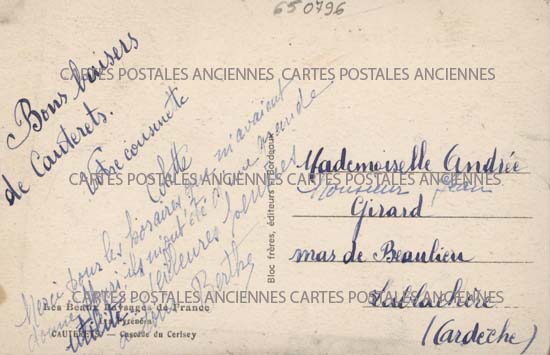 650796
Bons baisers
de Cauterets.
Votre cousinette
Colette
Merci pour les rosaires que m'avaient
donné ils m'ont été d'une grande
utilité
meilleures
Berthe
Mademoiselle Andrée
Monsieur Jean
Girard
mas de Beaulieu
Lablachère
(Ardèche)
Bloc frères, éditeurs à Bordeaux
Les Beaux Paysages de France
Les Pyrénées
CAUTERETS - Cascade du Cerisey
CARTES POSTALES ANCIENNES CARTES POSTALES ANCIENNES
CARTES POSTALES ANCIENNES CARTES POSTALES ANCIENNES
CARTES POSTALES ANCIENNES CARTES POSTALES ANCIENNES